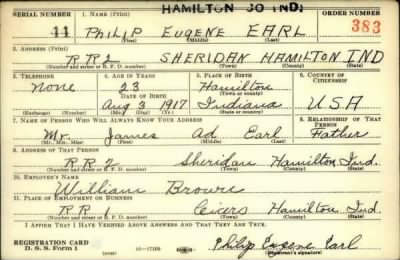 HAMILTON JO IND.
SERIAL NUMBER 1. NAME (Print) ORDER NUMBER
44 PHILIP EUGENE EARL 383
(First) (Middle) (Last)
2. ADDRESS (Print)
R R 2 SHERIDAN HAMILTON IND
(Number and street or R. F. D. number) (Town) (County) (State)
3. TELEPHONE 4. AGE IN YEARS 5. PLACE OF BIRTH 6. COUNTRY OF CITIZENSHIP
None 23 Hamilton
DATE OF BIRTH (Town or county)
Aug 3 1917 Indiana USA
(Exchange) (Number) (Mo.) (Day) (Yr.) (State or country)
7. NAME OF PERSON WHO WILL ALWAYS KNOW YOUR ADDRESS 8. RELATIONSHIP OF THAT PERSON
Mr. James Ad Earl Father
(Mr., Mrs., Miss) (First) (Middle) (Last)
9. ADDRESS OF THAT PERSON
R R 2 Sheridan Hamilton Ind.
(Number and street or R. F. D. number) (Town) (County) (State)
10. EMPLOYER'S NAME
William Brown
11. PLACE OF EMPLOYMENT OR BUSINESS
R R 1 Hamilton Ind.
(Number and street or R. F. D. number) (Town) (County) (State)
I AFFIRM THAT I HAVE VERIFIED ABOVE ANSWERS AND THAT THEY ARE TRUE.
REGISTRATION CARD
D. S. S. Form 1 (over) Philip Eugene Earl
(Registrant's signature)